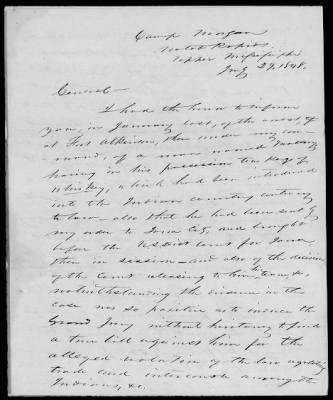 Camp Morgan
Rapids,
Upper Mississippi
July 29, 1848.
General—
I had the honor to inform
you, in January last, of the arrest,
at Fort Atkinson, then under my com-
mand, of a man named
having in his possession ten kegs of
whiskey, which had been introduced
into the Indian country contrary
to law— also that he had been sent by
my order to Iowa City, and brought
before the District Court for Iowa,
then in session— and also of the decision
of the court releasing to him &c,
notwithstanding the evidence in the
case was so positive as to induce the
Grand Jury without hesitancy to find
a true bill against him for the
alleged violation of the law regulating
trade and intercourse among the
Indians, &c.